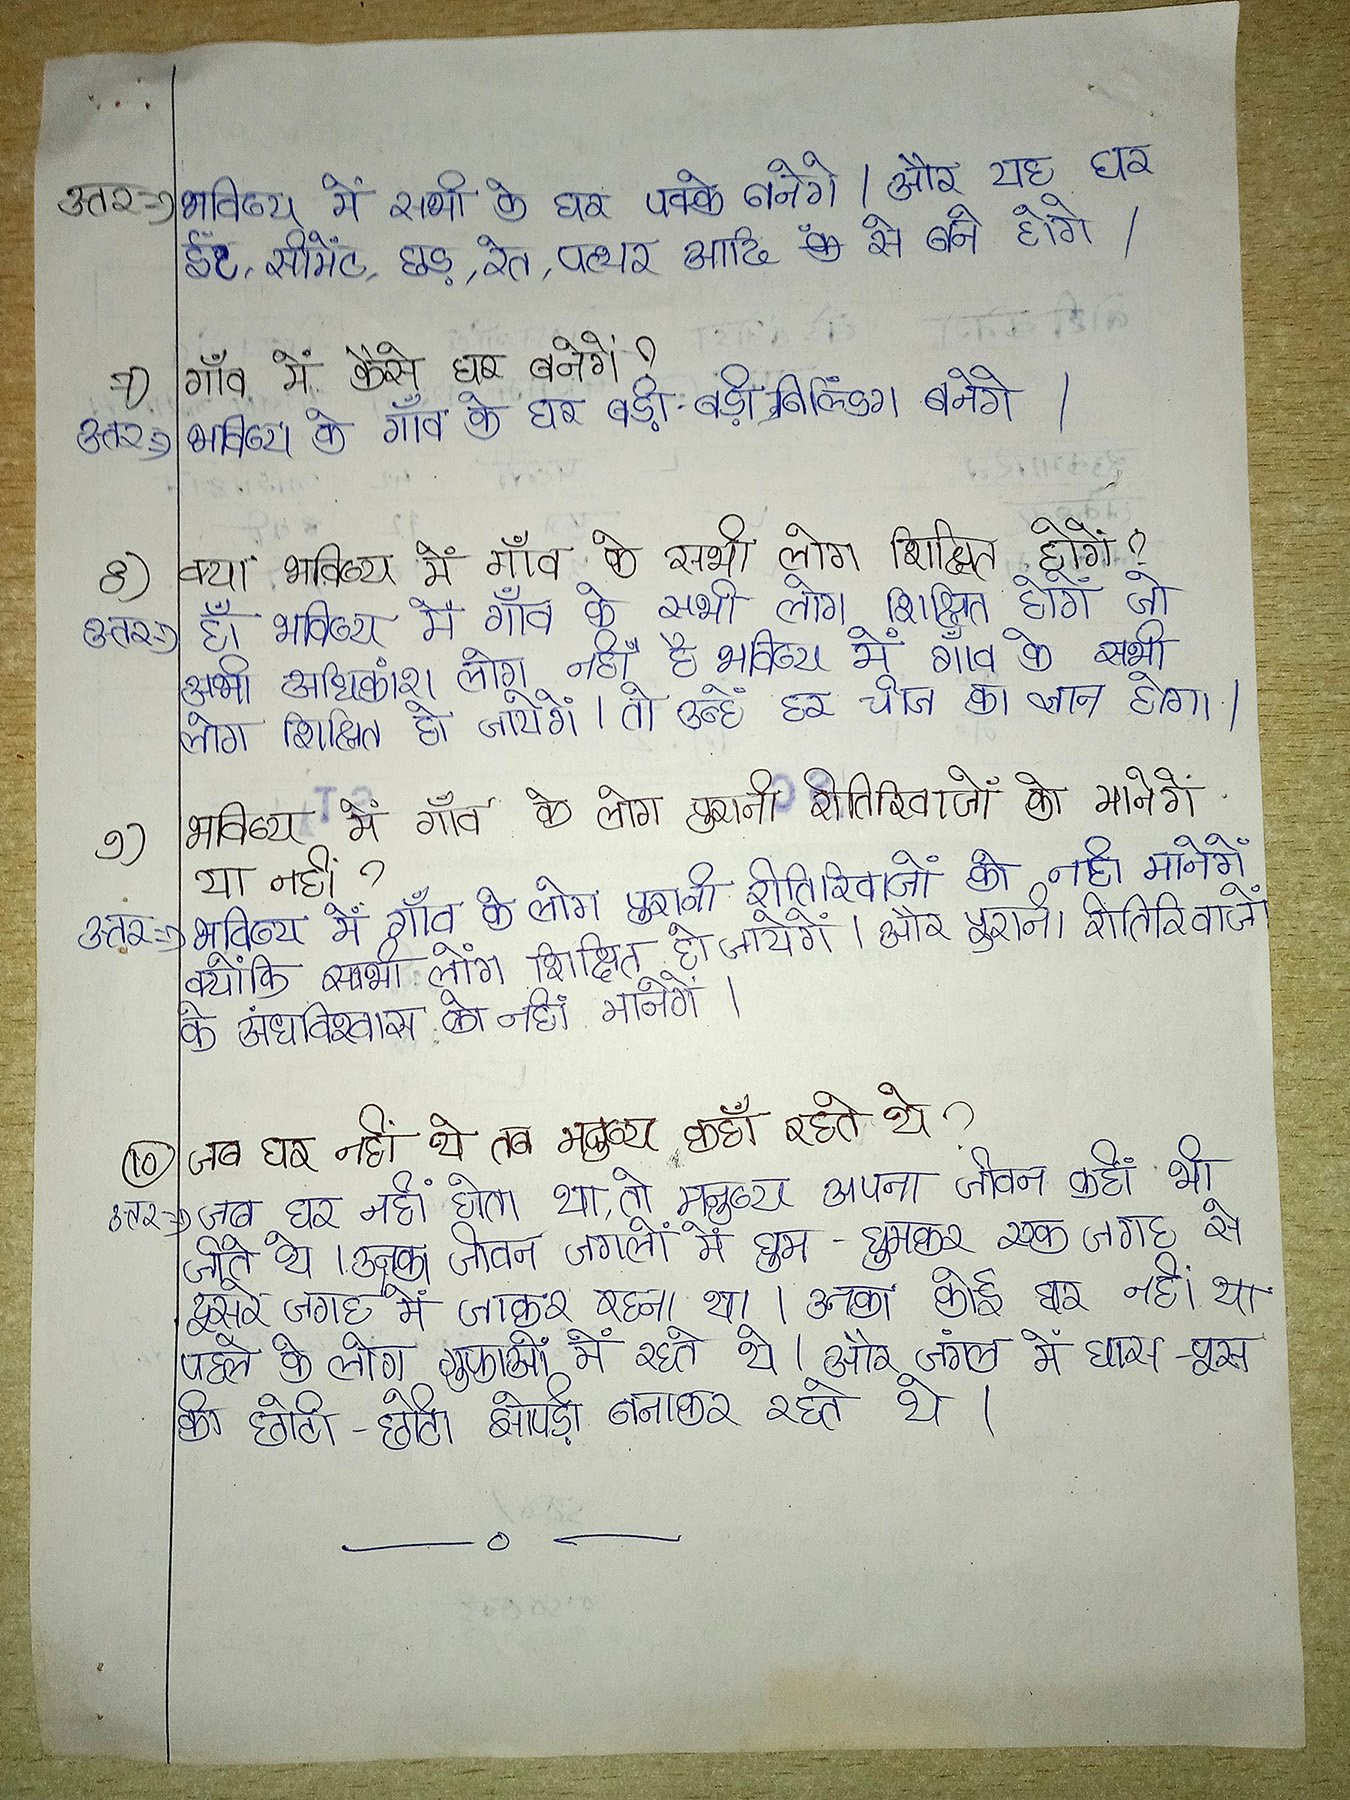 उतर⇒ भविष्य में सभी के घर पक्के बनेगे । और यह घर
ईंट, सीमेंट, छड़, रेत, पत्थर आदि से बने होगे ।
7) गाँव में कैसे घर बनेगें ?
उतर⇒ भविष्य के गाँव के घर बड़ी-बड़ी बिल्डिंग बनेगे ।
8) क्या भविष्य में गाँव के सभी लोग शिक्षित होगें ?
उतर⇒ हाँ भविष्य में गाँव के सभी लोग शिक्षित होगें जो
अभी अधिकांश लोग नहीं है भविष्य में गाँव के सभी
लोग शिक्षित हो जायेगें । तो उन्हें हर चीज का ज्ञान होगा ।
9) भविष्य में गाँव के लोग पुरानी रीतिरिवाजों को मानेगें
या नहीं ?
उतर⇒ भविष्य में गाँव के लोग पुरानी रीतिरिवाजों को नही मानेगें
क्योंकि सभी लोंग शिक्षित हो जायेगें । और पुरानी रीतिरिवाजों
के अंधविश्वास को नहीं मानेगें ।
10) जब घर नहीं थे तब मनुष्य कहाँ रहते थे ?
उतर⇒ जब घर नहीं होता था, तो मनुष्य अपना जीवन कहीं भी
जीते थे । उनका जीवन जगलों में घुम - घुमकर एक जगह से
दूसरे जगह में जाकर रहना था । उनका कोई घर नहीं था
पहले के लोग गुफाओं में रहते थे । और जंगल में घास -फुस
की छोटी - छोटी झोपड़ी बनाकर रहते थे ।